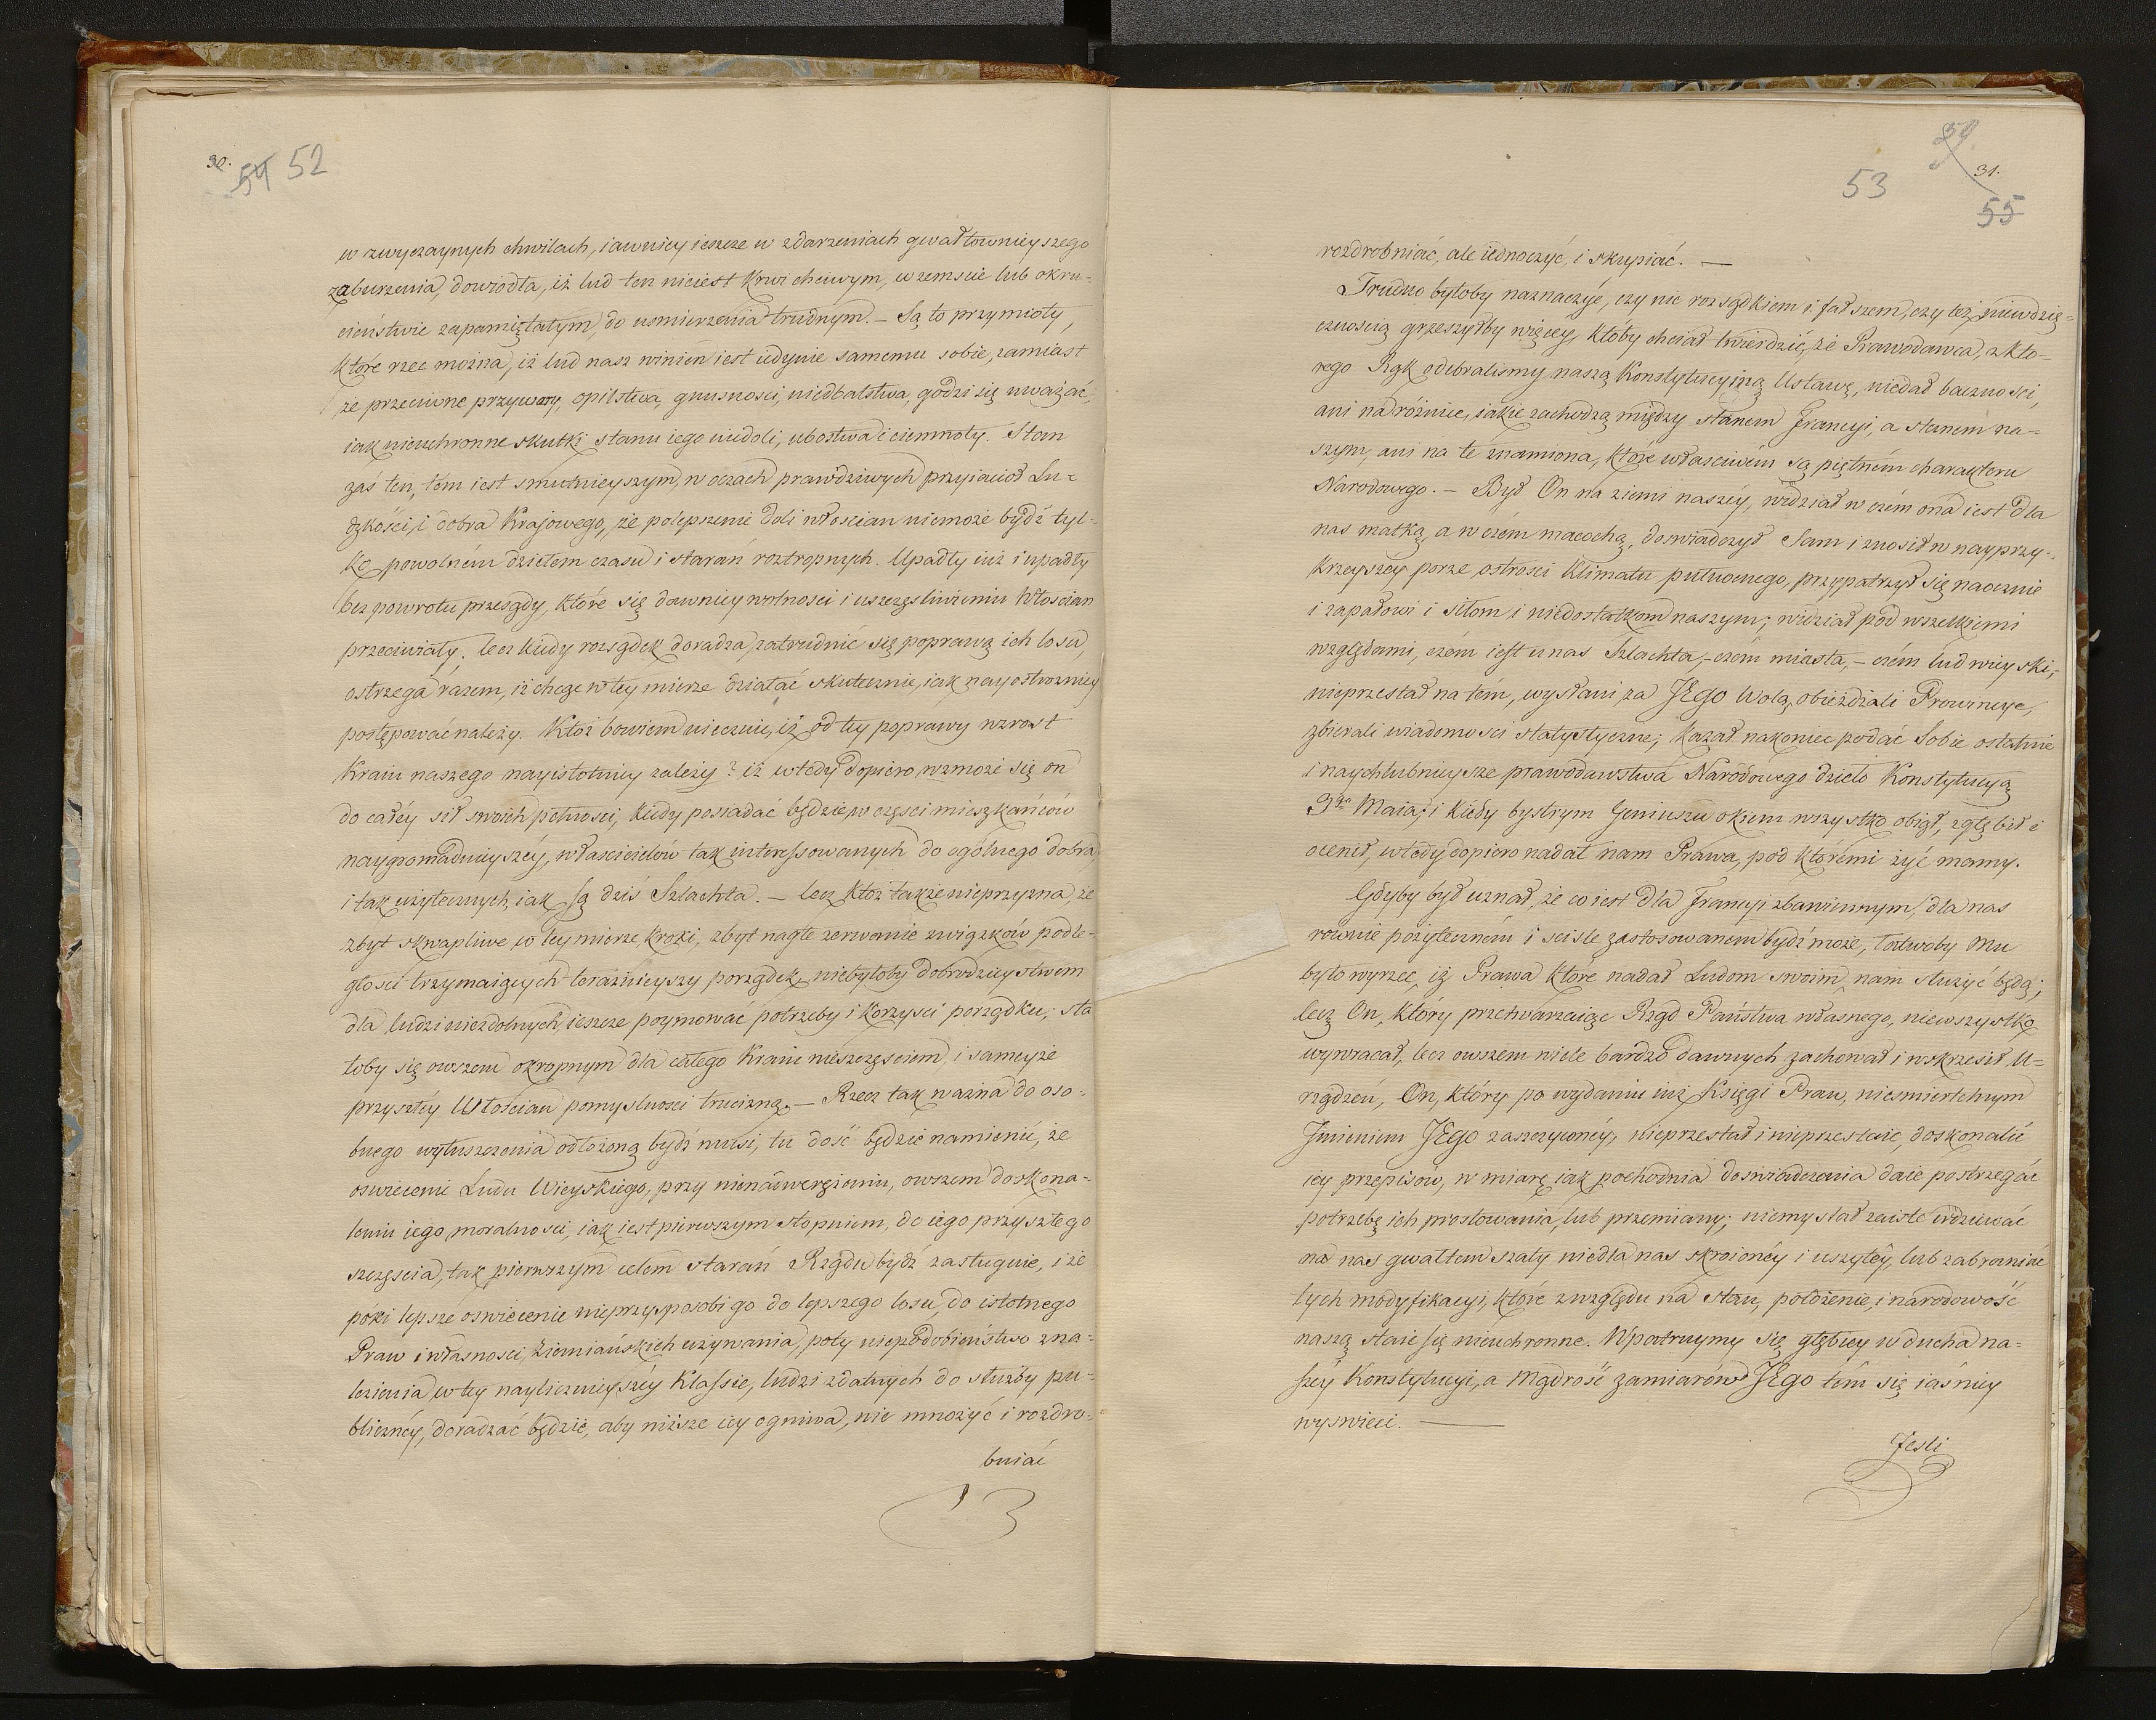 30. 54 52
w zwyczaynych chwilach, iawniey ieszcze w zdarzeniach gwałtownieyszego
zaburzenia, dowiodła, iż lud ten nieiest krwi chciwym, w zemscie lub okru-
cieństwie zapamiętałym, do usmierzenia trudnym. — Są to przymioty,
które rzec można, iż lud nasz winien iest iedynie samemu sobie, zamiast
że przeciwne przywary, opilstwa, gnusnosci, niedbalstwa, godzi się uważać,
iak nieuchronne skutki stanu iego niedoli, ubostwa i ciemnoty. Stan
zaś ten, tém iest smutnieyszym, w oczach prawdziwych przyiacioł Lu-
dzkości, i dobra Krajowego, że polepszenie doli włoscian niemoże bydź tyl-
ko powolném dziełem czasu i starań roztropnych. Upadły iuż i upadły
bez powrotu przesądy, które się dawniey wolnosci i uszczęsliwieniu Włoscian
przeciwiały; lecz kiedy rozsądek doradza, zatrudnić się poprawą ich losu,
ostrzega razem, iż chcąc w tey mierze działać skutecznie, iak nayostrożniey
postępować należy. Któż bowiem nieczuie, iż od tey poprawy wzrost
Kraiu naszego nayistotniey zależy? iż wtedy dopiero wzmoże się on
do całéy sił swoich pełnosci, kiedy posiadać będzie w częsci mieszkańców
naygromadnieyszéy, własciciełów tak interessowanych do ogólnego dobra,
i tak użytecznych, iak są dziś Szlachta. — Lecz któż także nieprzyzna, że
zbyt skwapliwe w tey mierze kroki, zbyt nagłe zerwanie związków podle-
głosci trzymaiących teraźnieyszy porządek, niebyłoby dobrodzieystwem
dla ludzi niezdolnych ieszcze poymować potrzeby i korzysci porządku; sta
łoby się owszem okropnym dla całego Kraiu nieszczęsciem, i sameyże
przyszłéy Włościan pomyslnosci trucizną. — Rzecz tak ważna do oso-
bnego wyłuszczenia odłożoną bydź musi, tu dość będzie namienić, że
oswiecenie Ludu Wieyskiego, przy nienadwerężeniu, owszem doskona-
leniu iego moralnosci, iak iest pierwszym stopniem, do iego przyszłego
szczęscia, tak pierwszym celem starań Rządu bydź zasługuie, i że
póki lepsze oswiecenie nieprzysposobi go do lepszego losu, do istotnego
Praw i własnosci, Ziemiańskich używania, poty niepodobieństwo zna-
lezienia w tey nayliczniéyszéy Klassie, ludzi zdatnych do służby pu-
bliczney, doradzać będzie, aby niższe iey ogniwa, nie mnożyć i rozdro-
bniać
53 31. 55
rozdrobniać, ale iednoczyć, i skupiać. —
Trudno byłoby naznaczyć, czy nie rozsądkiem i fałszem, czy też niewdzię-
cznoscią grzeszyłby więcey, ktoby chciał twierdzić, że Prawodawca, z któ-
rego Rąk odebralismy naszą Konstytucyiną Ustawę, niedał bacznosci,
ani na różnice, iakie zachodzą między stanem Francyi, a stanem na-
szym, ani na te znamiona, które własciwém są piętném charakteru
Narodowego. — Był On na ziemi naszéy, widział w czém ona iest dla
nas matką, a w czém macochą, doswiadczył Sam i znosił w nayprzy-
krzeyszéy porze ostrosci Klimatu pułnocnego, przypatrzył się naocznie
i zapałowi i siłom i niedostatkom naszym; widział pod wszelkiemi
względami, czém iest u nas Szlachta, — czém miasta, — czém lud wieyski;
nieprzestał na tém, wysłani za JEgo Wolą, obieżdżali Prowincye,
zbierali wiadomosci statystyczne; kazał nakoniec podać Sobie ostatnie
i naychlubnieysze prawodawstwa Narodowego dzieło Konstytucyą
3go Maia; i kiedy bystrym Geniuszu okiem wszystko obiął, zgłębił i
ocenił, wtedy dopiero nadał nam Prawa, pod któremi żyć mamy.
Gdyby był uznał, że co iest dla Francyi zbawiennym, dla nas
rownie pożyteczném i scisle zastosowaném bydź może, łatwoby Mu
było wyrzec, iż Prawa które nadał Ludom swoim, nam służyć będą;
lecz On, który przetwarzaiąc Rząd Państwa własnego, niewszystko
wywracał, lecz owszem wiele bardzo dawnych zachował i wskrzesił U-
rządzeń, On, który po wydaniu iuż Księgi Praw, niesmiertelnym
Jmieniem JEgo zaszczyconéy, nieprzestał i nieprzestaie, doskonalić
iey przepisów, w miarę iak pochodnia doswiadczenia daie postrzegać
potrzebę ich prostowania, lub przemiany; niemyslał zaiste wdziewać
na nas gwałtem szaty niedla nas skroionéy i uszytéy, lub zabraniać
tych modyfikacyi, które z względu na stan, położenie, i narodowość
naszą staie się nieuchronne. Wpatruymy się głębiey w ducha na-
széy Konstytucyi, a Mądrość zamiarów JEgo tém się iaśniey
wyswieci. —
Jesli